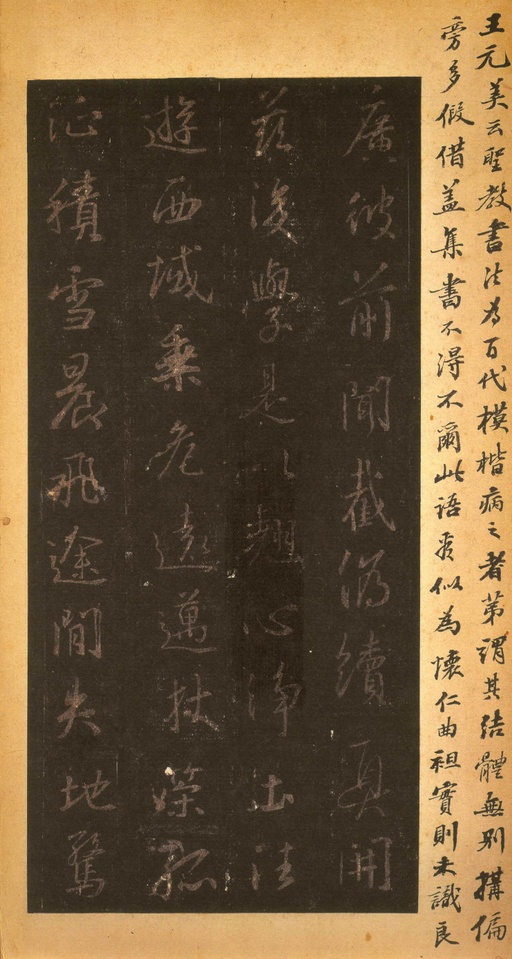 王元美云聖教書法為百代模楷病之者第謂其結體無別搆偏
旁多假借蓋集書不得不爾此語似為懷仁曲袒實則未識良
廣彼前聞截偽續真開
茲後學是以翹心淨土法
遊西域乘危遠邁杖策孤
征積雪晨飛途閒失地驚